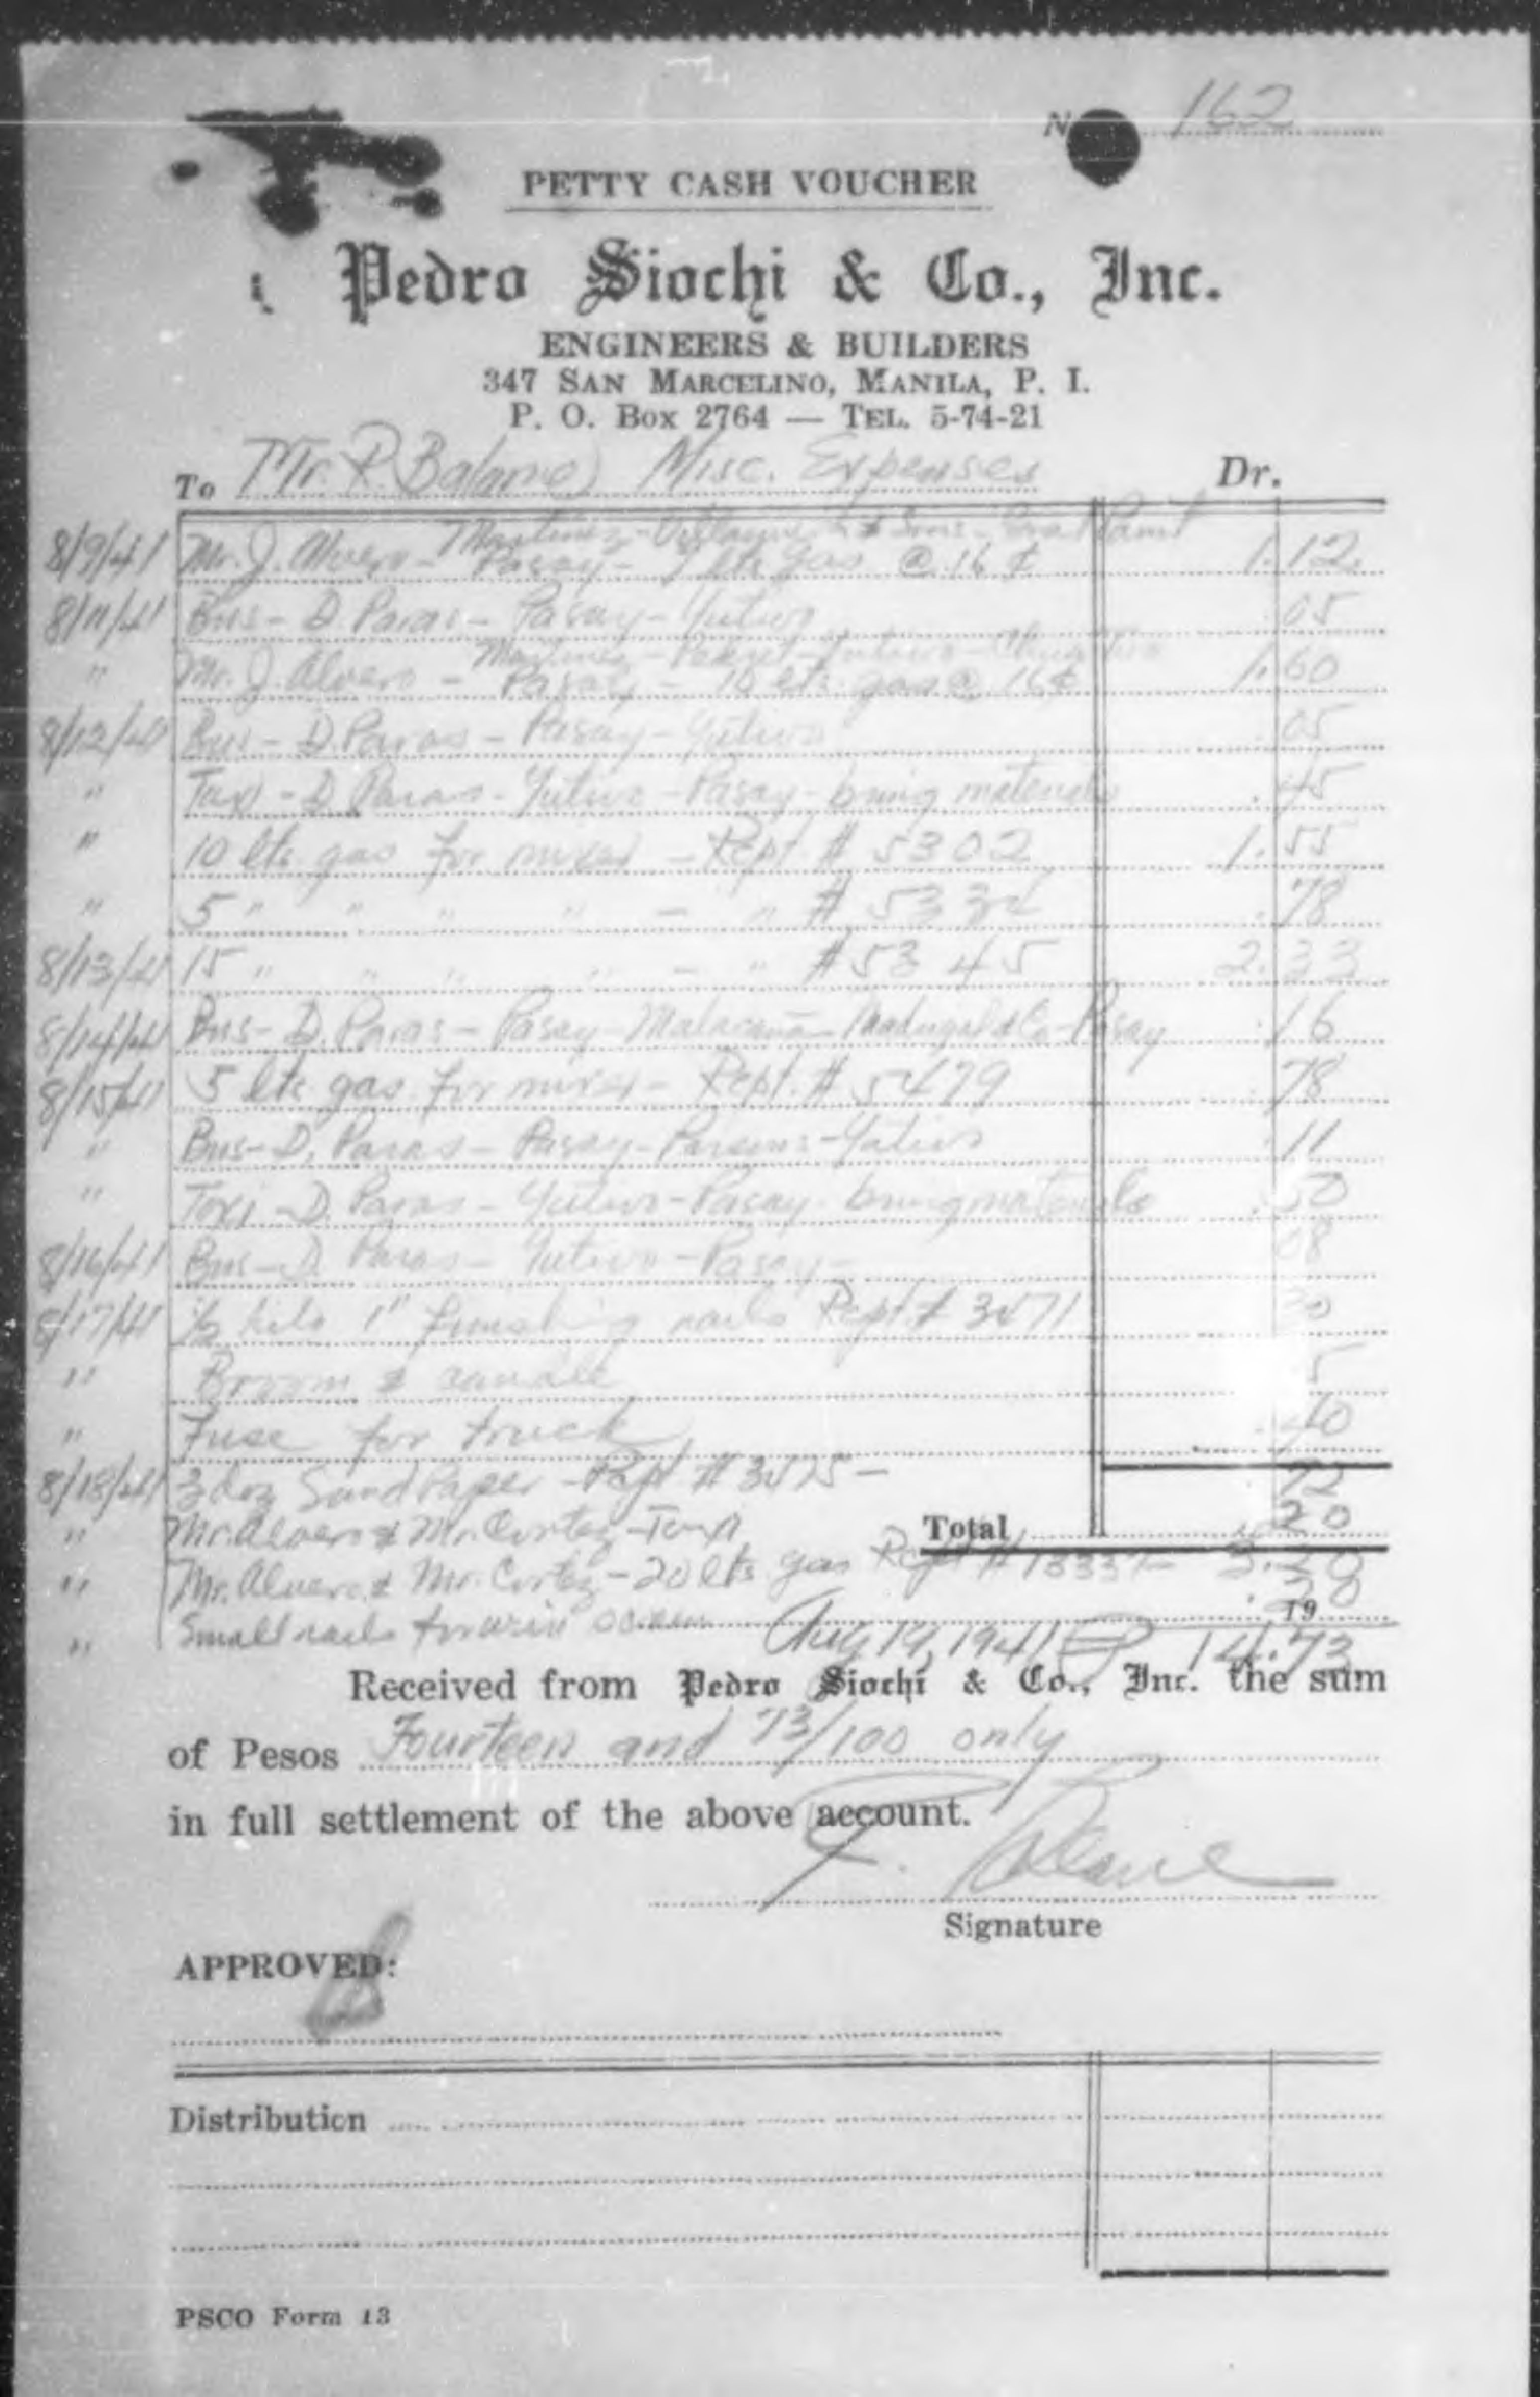 No. 162
PETTY CASH VOUCHER
Pedro Siochi & Co., Inc.
ENGINEERS & BUILDERS
347 SAN MARCELINO, MANILA, P. I.
P. O. Box 2764 — TEL. 5-74-21
To Mr. P. Misc. Expenses Dr.
Martinez - & Sons -
8/9/41 Mr. J. Alvero - Pasay - 7 lts gas @ 16 ¢ 1.12
8/11/41 Bus - D. Paras - Pasay - Yutivo .05
Martinez - - Yutivo -
" Mr. J. Alvero - Pasay - 10 lts. gas @ 16¢ 1.60
8/12/41 Bus - D. Paras - Pasay - Yutivo .05
" Taxi - D. Paras - Yutivo - Pasay - bring materials .45
" 10 lts. gas for mixer - Rcpt. # 5302 1.55
" 5 " " " " - " # 5334 .78
8/13/41 15 " " " " - " # 5345 2.33
8/14/41 Bus - D. Paras - Pasay - Malacañan - Madrigal & Co. - Pasay .16
8/15/41 5 lts gas for mixer - Rcpt. # 5479 .78
" Bus - D. Paras - Pasay - Parsons - Yutivo .11
" Taxi - D. Paras - Yutivo - Pasay - bring materials .50
8/16/41 Bus - D. Paras - Yutivo - Pasay - .08
8/17/41 ½ kilo 1" finishing nails Rcpt. # 3471
" Broom & 5
" Fuse for truck .10
8/18/41 3 doz Sand Paper - Rcpt # 3475 - .72
" Mr. Alvero & Mr. Cortez - Taxi Total .20
" Mr. Alvero & Mr. Cortez - 20 lts gas Rcpt # 3.20
" Small nails for screen .20
19
Aug 19, 1941 ₱ 14.73
Received from Pedro Siochi & Co., Inc. the sum
of Pesos Fourteen and 73/100 only
in full settlement of the above account.
Signature
APPROVED:
Distribution
PSCO Form 13